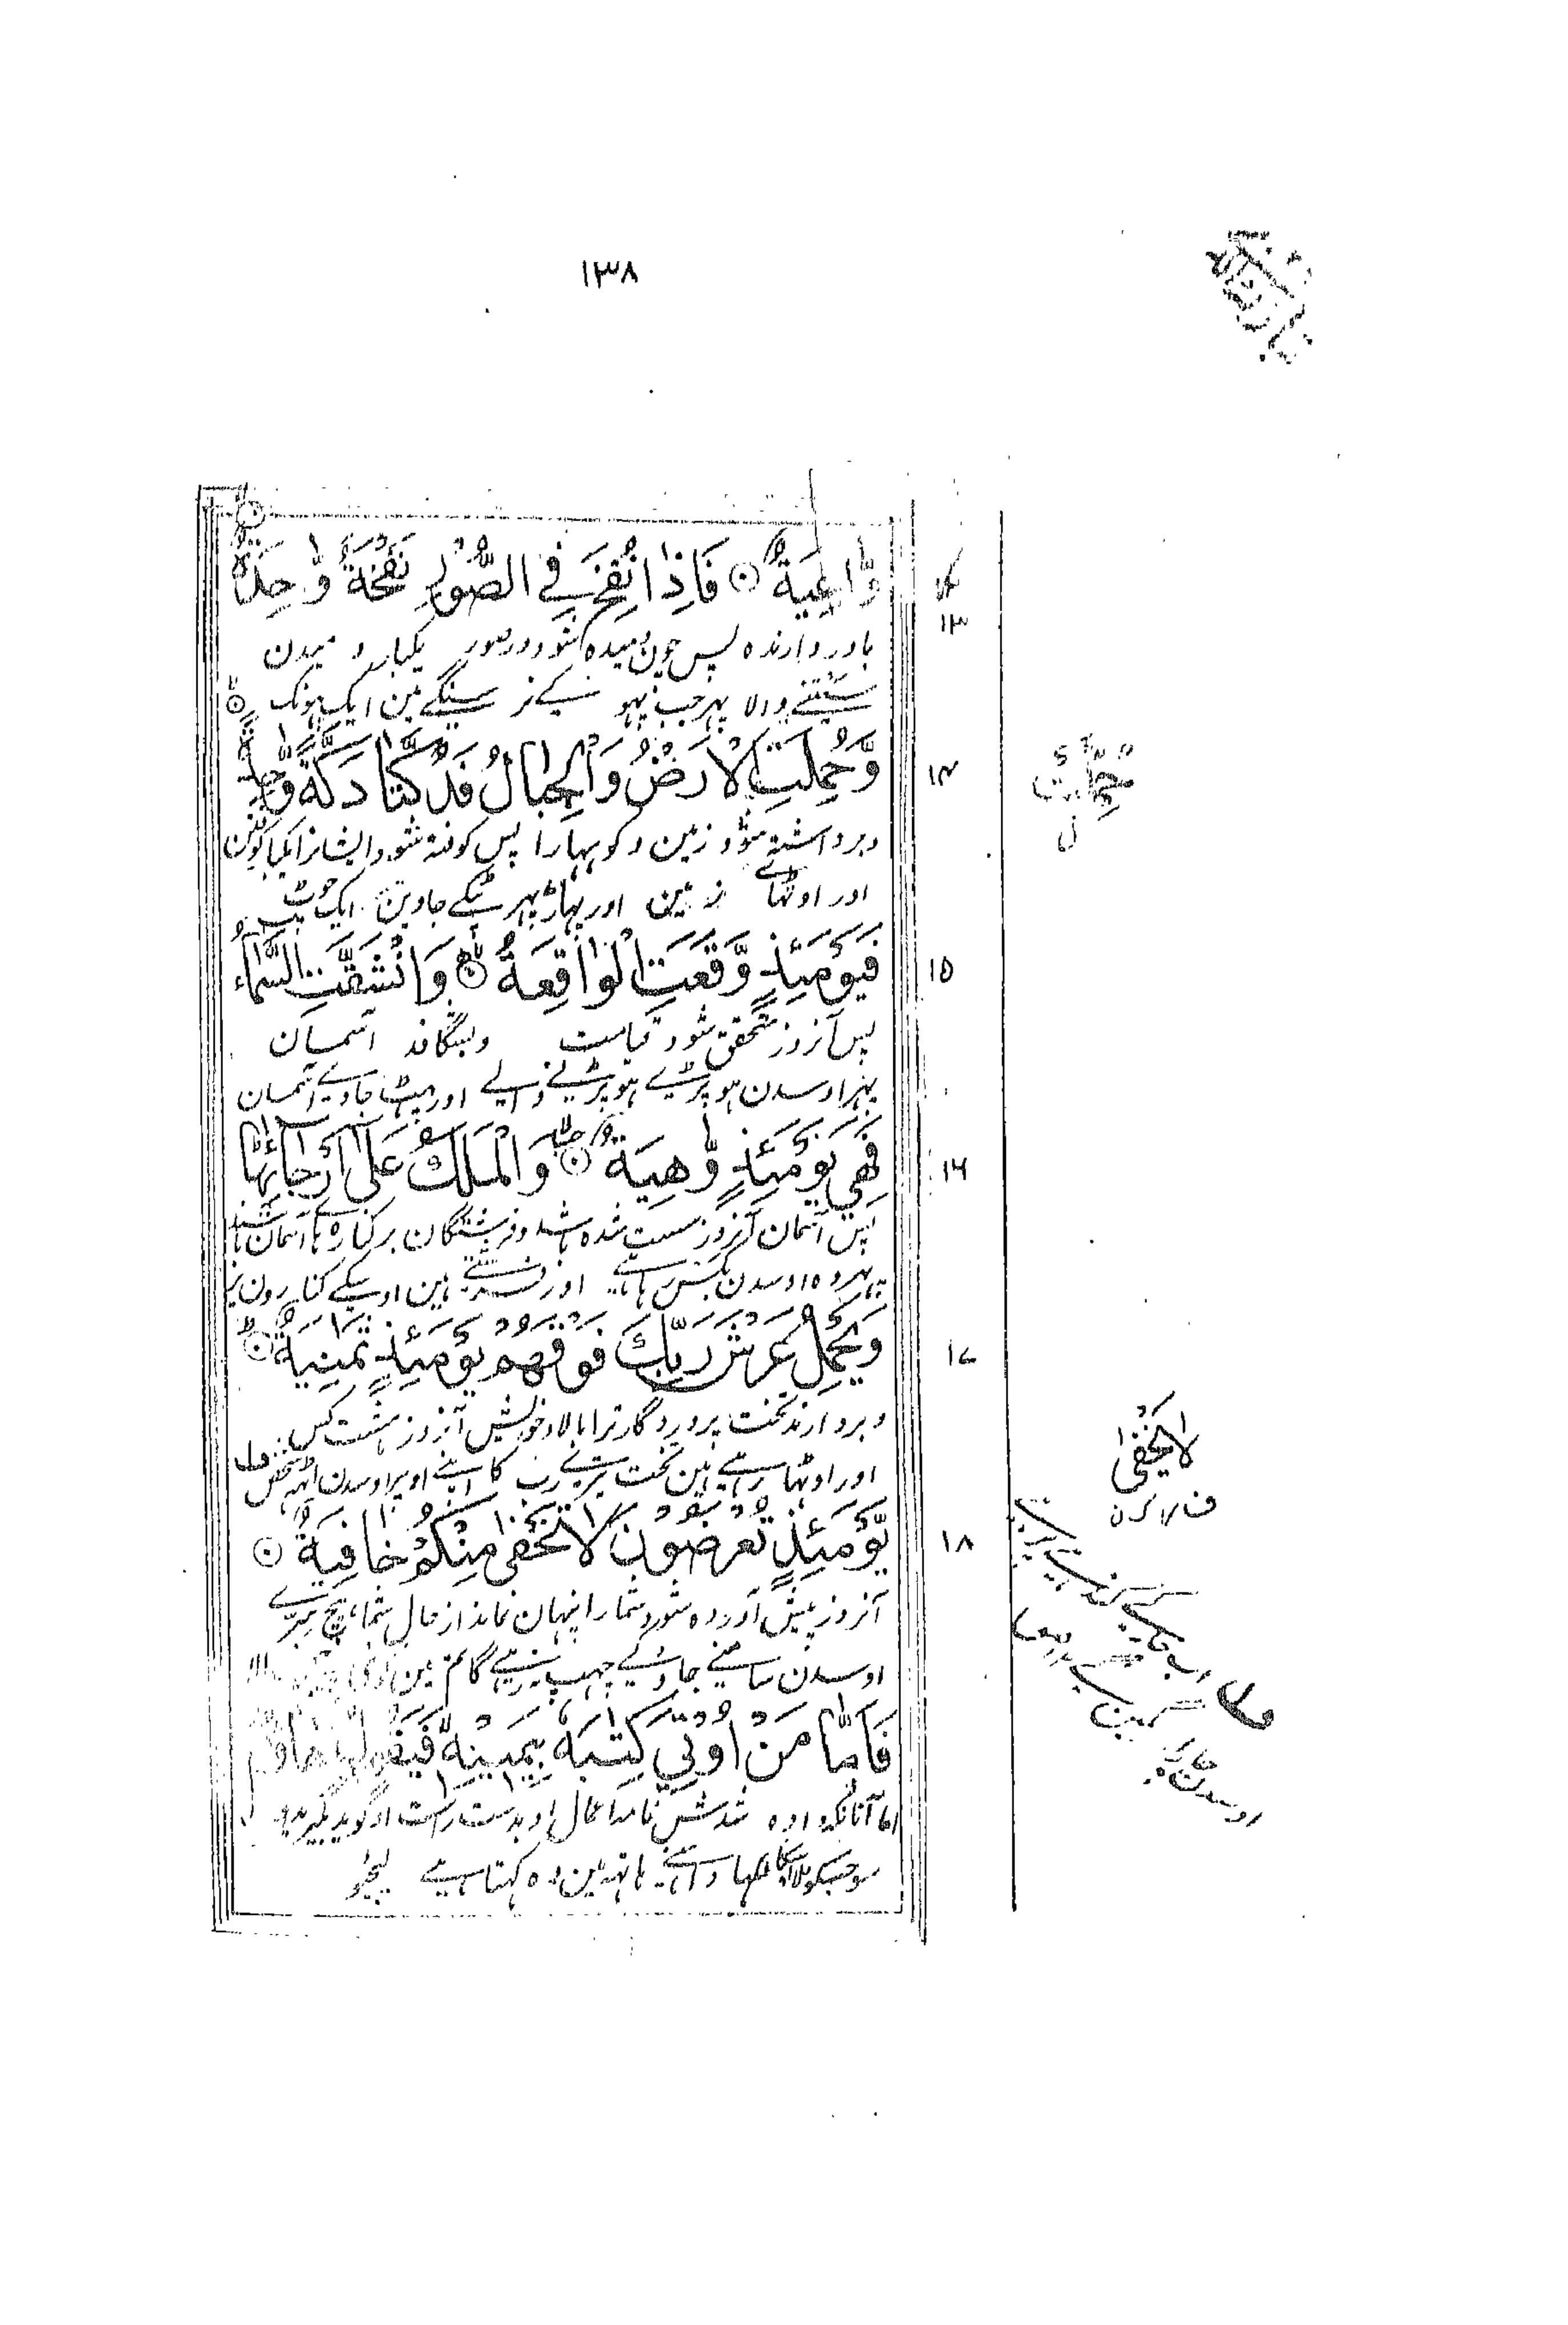 ١٣٨
وَّاعِيَةٌ ۝ فَاِذَا نُفِخَ فِي الصُّوْرِ نَفْخَةٌ وَّاحِدَةٌ
١٣
یاد دارنده پس چون دمیده شود در صور یکبار دمیدن
سینتنے والا پہر جب پہو نکے نر سینگے مین ایک پہونک
وَّحُمِلَتِ الْاَرْضُ وَالْجِبَالُ فَدُكَّتَا دَكَّةً وَّاحِدَةً
١٤
وبرداشته شود زمین و کوہہارا پس کوفته شود ایشانرا یکبار کوفتن
اور اوٹہائے زمین اور پہاڑ پہر پٹکے جاوین ایک چوٹ
فَيَوْمَئِذٍ وَّقَعَتِ الْوَاقِعَةُ ۝ وَانْشَقَّتِ السَّمَاءُ
١٥
پس آنروز متحقق شود قیامت وبشگافد آسمان
پہر اوسدن ہو پڑے ہو پڑنے والے اور پہٹ جاوے آسمان
فَهِيَ يَوْمَئِذٍ وَّاهِيَةٌ ۝ وَالْمَلَكُ عَلٰٓى اَرْجَآئِهَا
١٦
پس آسمان آنروز سست شده باشد و فرشتگان بر کناره ہائے آسمان باشند
پہر وہ اوسدن بکس رہاہے اور فرشتے ہین اوسکے کنارون پر
وَيَحْمِلُ عَرْشَ رَبِّكَ فَوْقَهُمْ يَوْمَئِذٍ ثَمٰنِيَةٌ ۝
١٧
وبردارند تخت پروردگار ترا بالاء خویش آنروز ہشت کس
اور اوٹہا رہے ہین تخت تیرے رب کا اپنے اوپر اوسدن آٹہہ شخص ف
يَوْمَئِذٍ تُعْرَضُوْنَ لَا تَخْفٰى مِنْكُمْ خَافِيَةٌ ۝
١٨
آنروز پیش آورده شود شمارا پنہان نماند از حال شما ہیچ سِرّے
اوسدن سامنے جاوگے چہپ نرہے گا تم مین کوئی
فَاَمَّا مَنْ اُوْتِيَ كِتٰبَهٗ بِيَمِيْنِهٖ فَيَقُوْلُ
اما آنانکہ داده شدش نامہ اعمال او بدست راست او گوید بگیرید
سو جسکو ملا اسکا لکہا داہنے ہاتہہ مین وہ کہتا ہے لیجیو
لَا يَخْفٰى